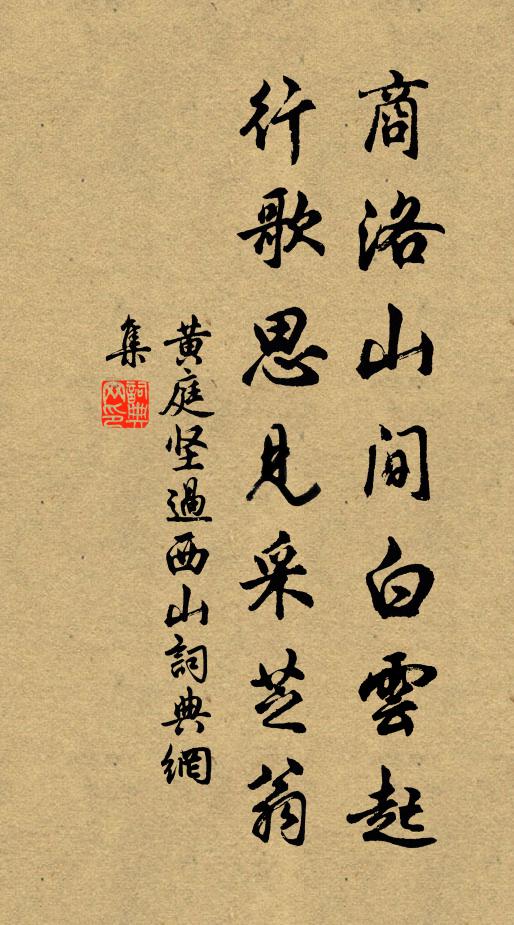 商洛山间白雲起
行歌思見采芝翁
黄庭坚過西山詞典網
集
詞典網印